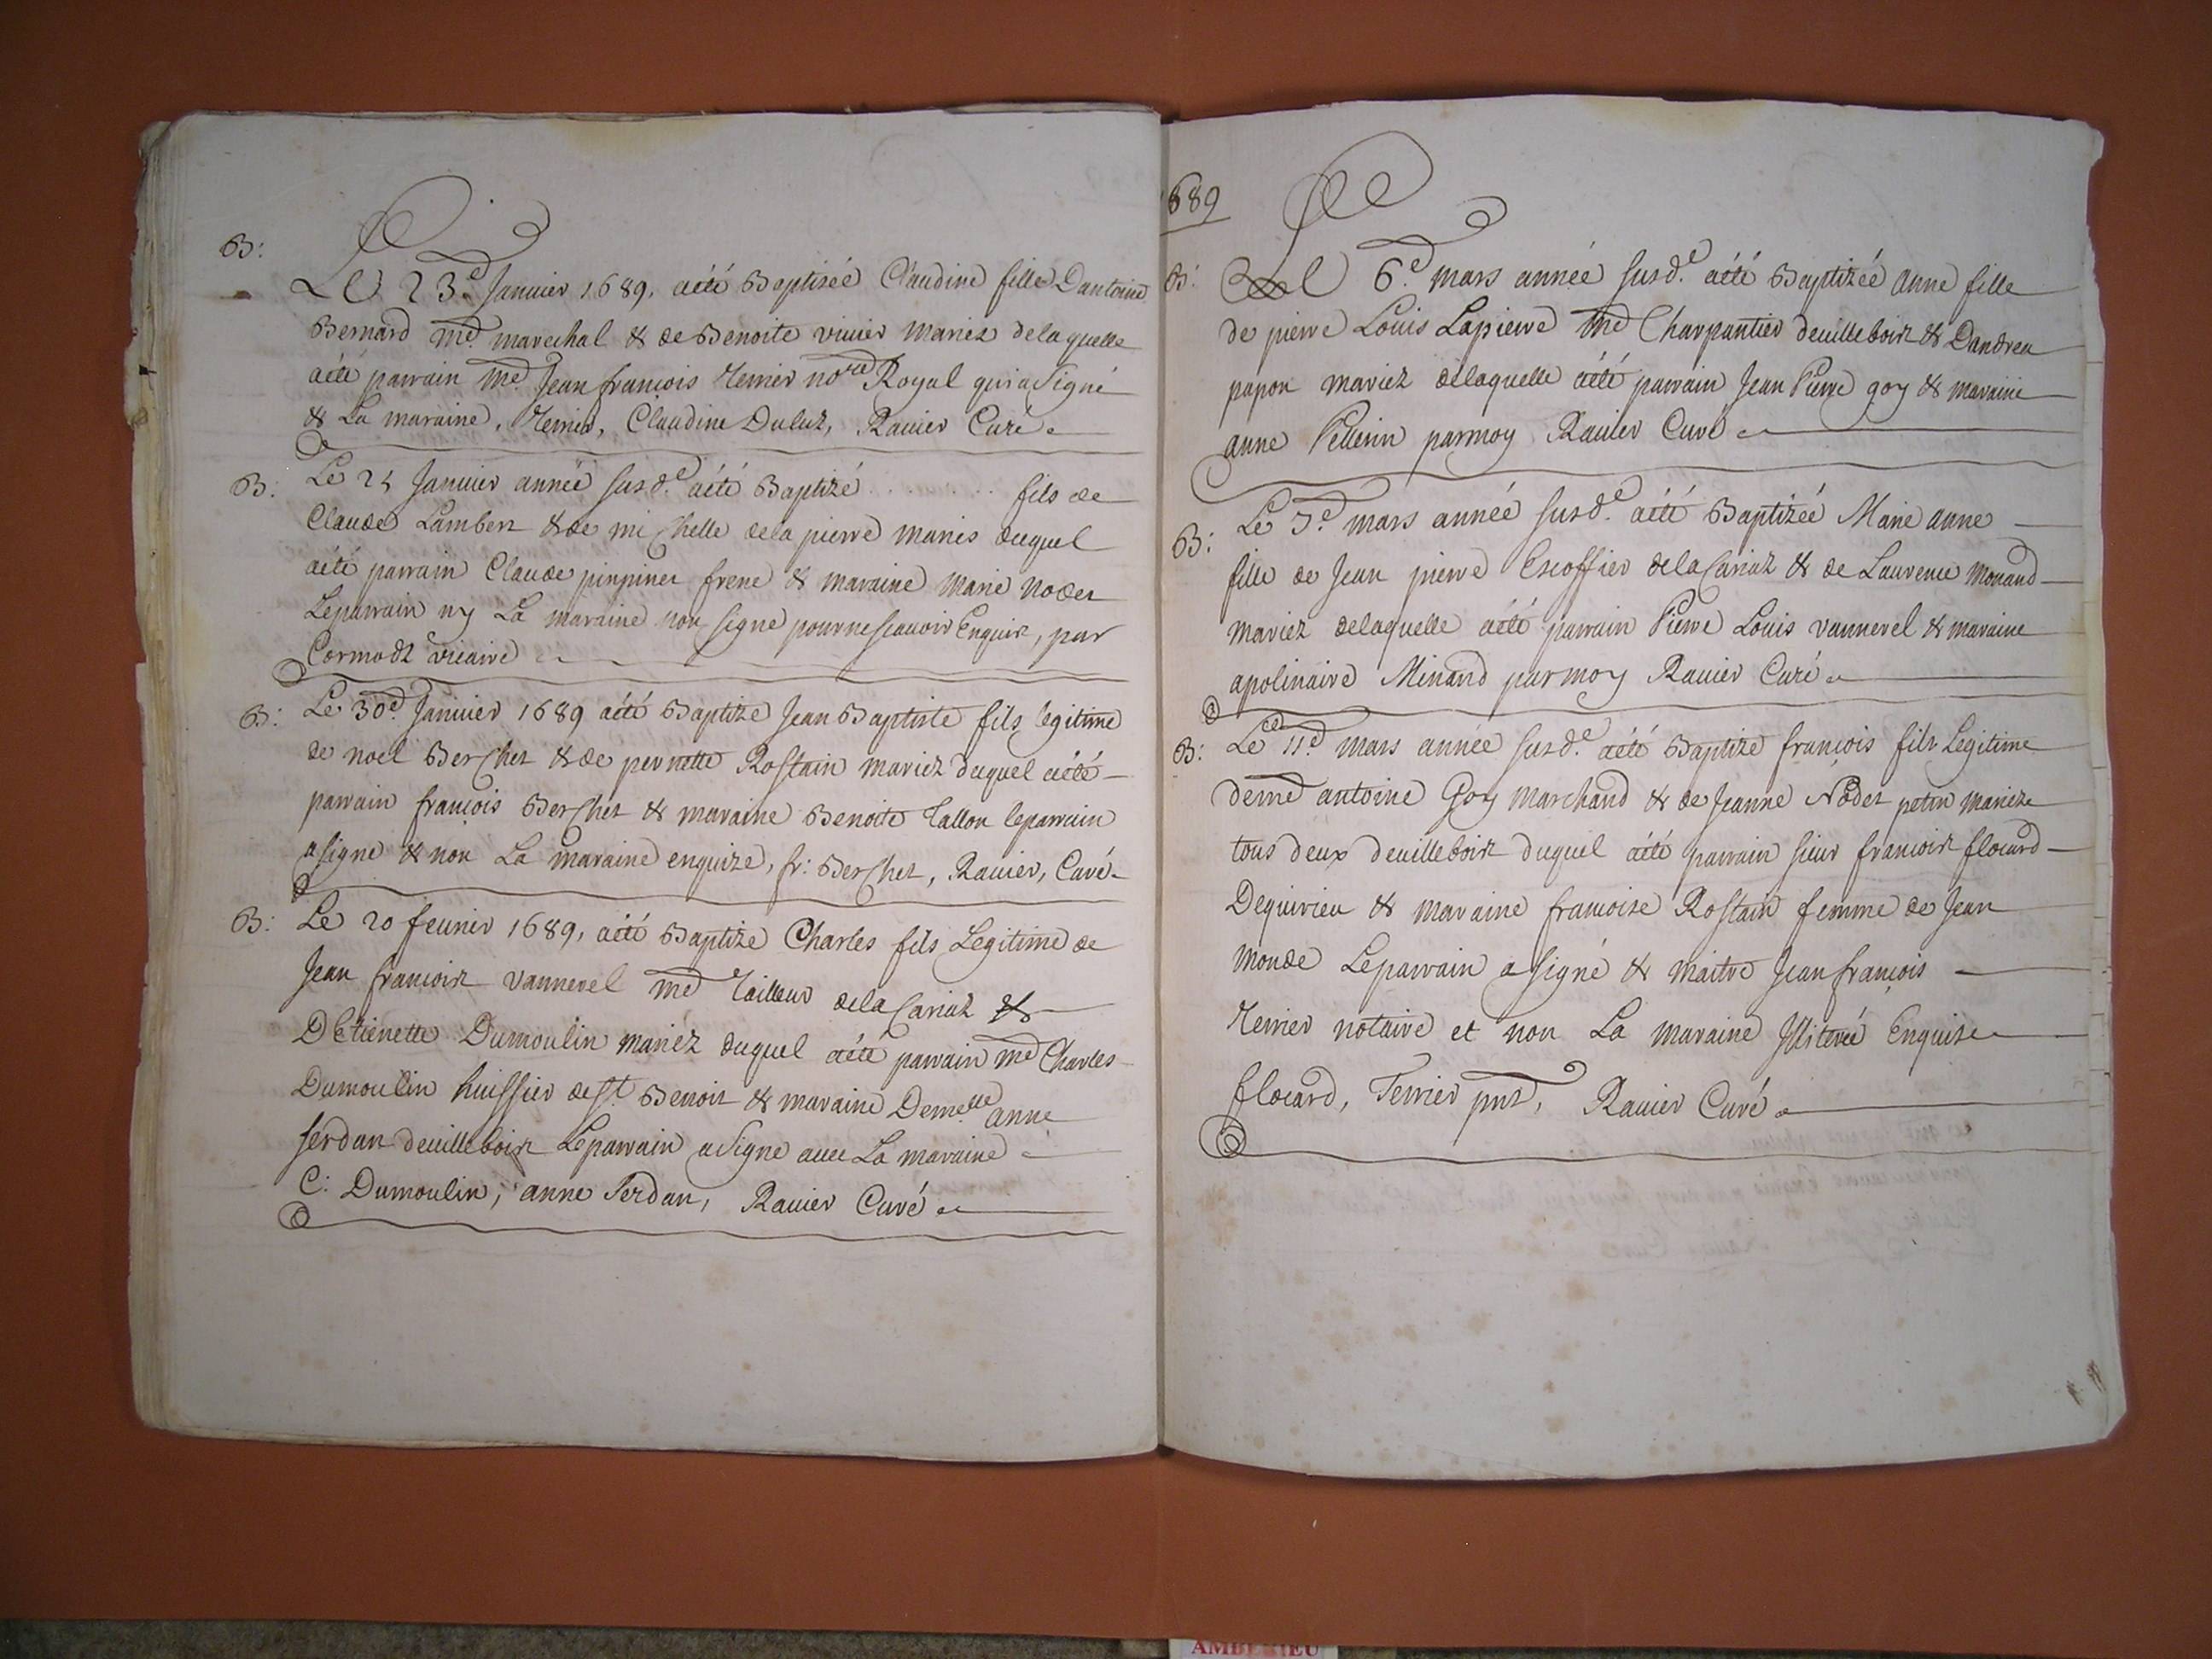 B:
Le 23e Janvier 1689. aété Baptisée Claudine fille Dantoine
Bernard me. marechal & de Benoite vivier mariez delaquelle
aété parrain me. Jean françois Terrier nore Royal qui a Signé
& La maraine, Terrier, Claudine Duluz, Ravier Curé
B:
Le 25 Janvier année susde. aété Baptizé . . . . . . . fils de
Claude Lambert & de michelle dela pierre mariés duquel
aété parrain Claude pinpinet frene & maraine marie noder
Leparrain ny La maraine non signe pour ne scauoir Enquis, par
Cormodz vicaire
B:
Le 30e. Janvier 1689 aété Baptize Jean Baptiste fils legitime
de noel Berchet & de pernette Rostain mariez duquel aété
parrain françois Berchet & maraine Benoite Tallon leparrain
a signe & non La maraine enquize, fr: Berchet, Ravier, Curé
B:
Le 20 fevrier 1689, aété Baptize Charles fils Legitime de
Jean francois vannerel me Tailleur dela Cariaz &
DEtienette Dumoulin mariéz duquel aété parrain me Charles
Dumoulin huissier de St. Benoit & maraine Demelle anne
serdan deuillebois Leparrain a Signe auec La maraine
C: Dumoulin, anne Serdan, Ravier Curé
1689
B:
Le 6e. mars année susde. aété Baptizéé anne fille
de pierre Louis Lapierre me Charpantier deuillebois & Dandrea
papon mariez delaquelle aété parrain Jean Pierre goy & maraine
anne Pellerin parmoy Ravier Curé
B:
Le 7e. mars année susde. aété Baptizéé Marie anne
fille de Jean pierre Escoffier dela Cariaz & de Laurence Monand
mariez delaquelle aété parrain Pierre Louis vannerel & maraine
apolinaire Minand parmoy Ravier Curé
B:
Le 11e mars année susde. aété Baptize françois fils Legitime
deme antoine Goy marchand & de Jeanne Noder petin mariéz
tous deux deuillebois duquel aété parrain sieur francois flocard
Dequirieu & maraine francoise Rostain femme de Jean
monde Leparrain a signé & maitre Jean françois
Terrier notaire et non La maraine Jlliteréé Enquise
flocard, Terrier pnt, Ravier Curé